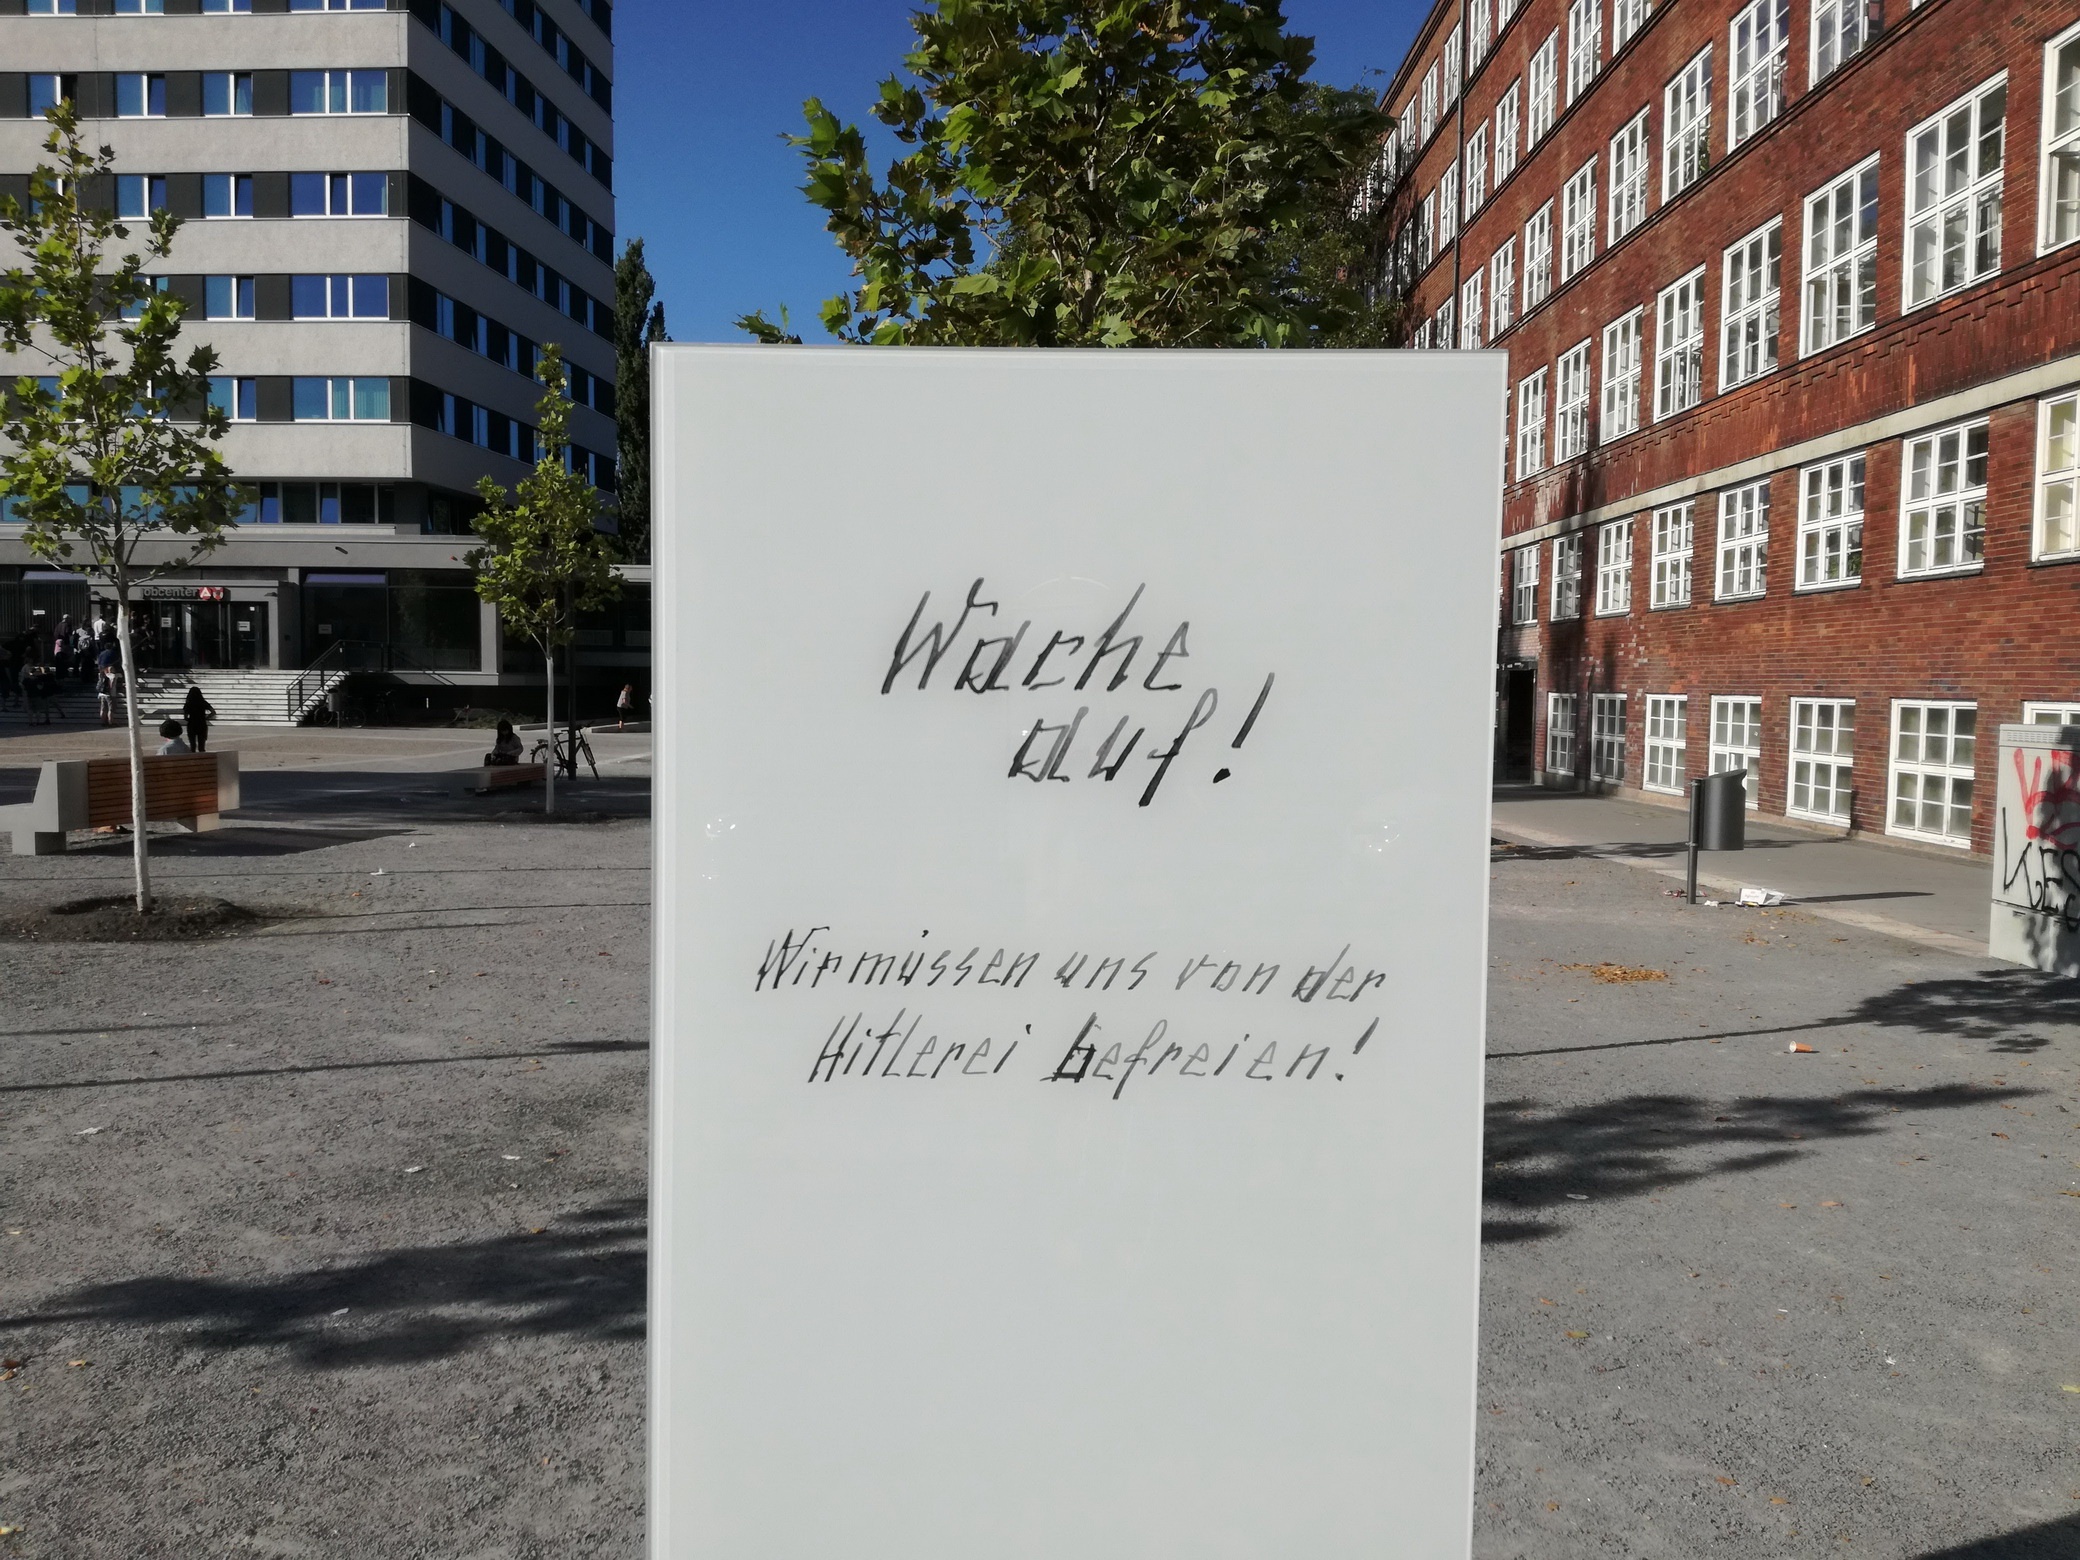 jobcenter
Wache
auf!
Wir müssen uns von der
Hitlerei befreien!